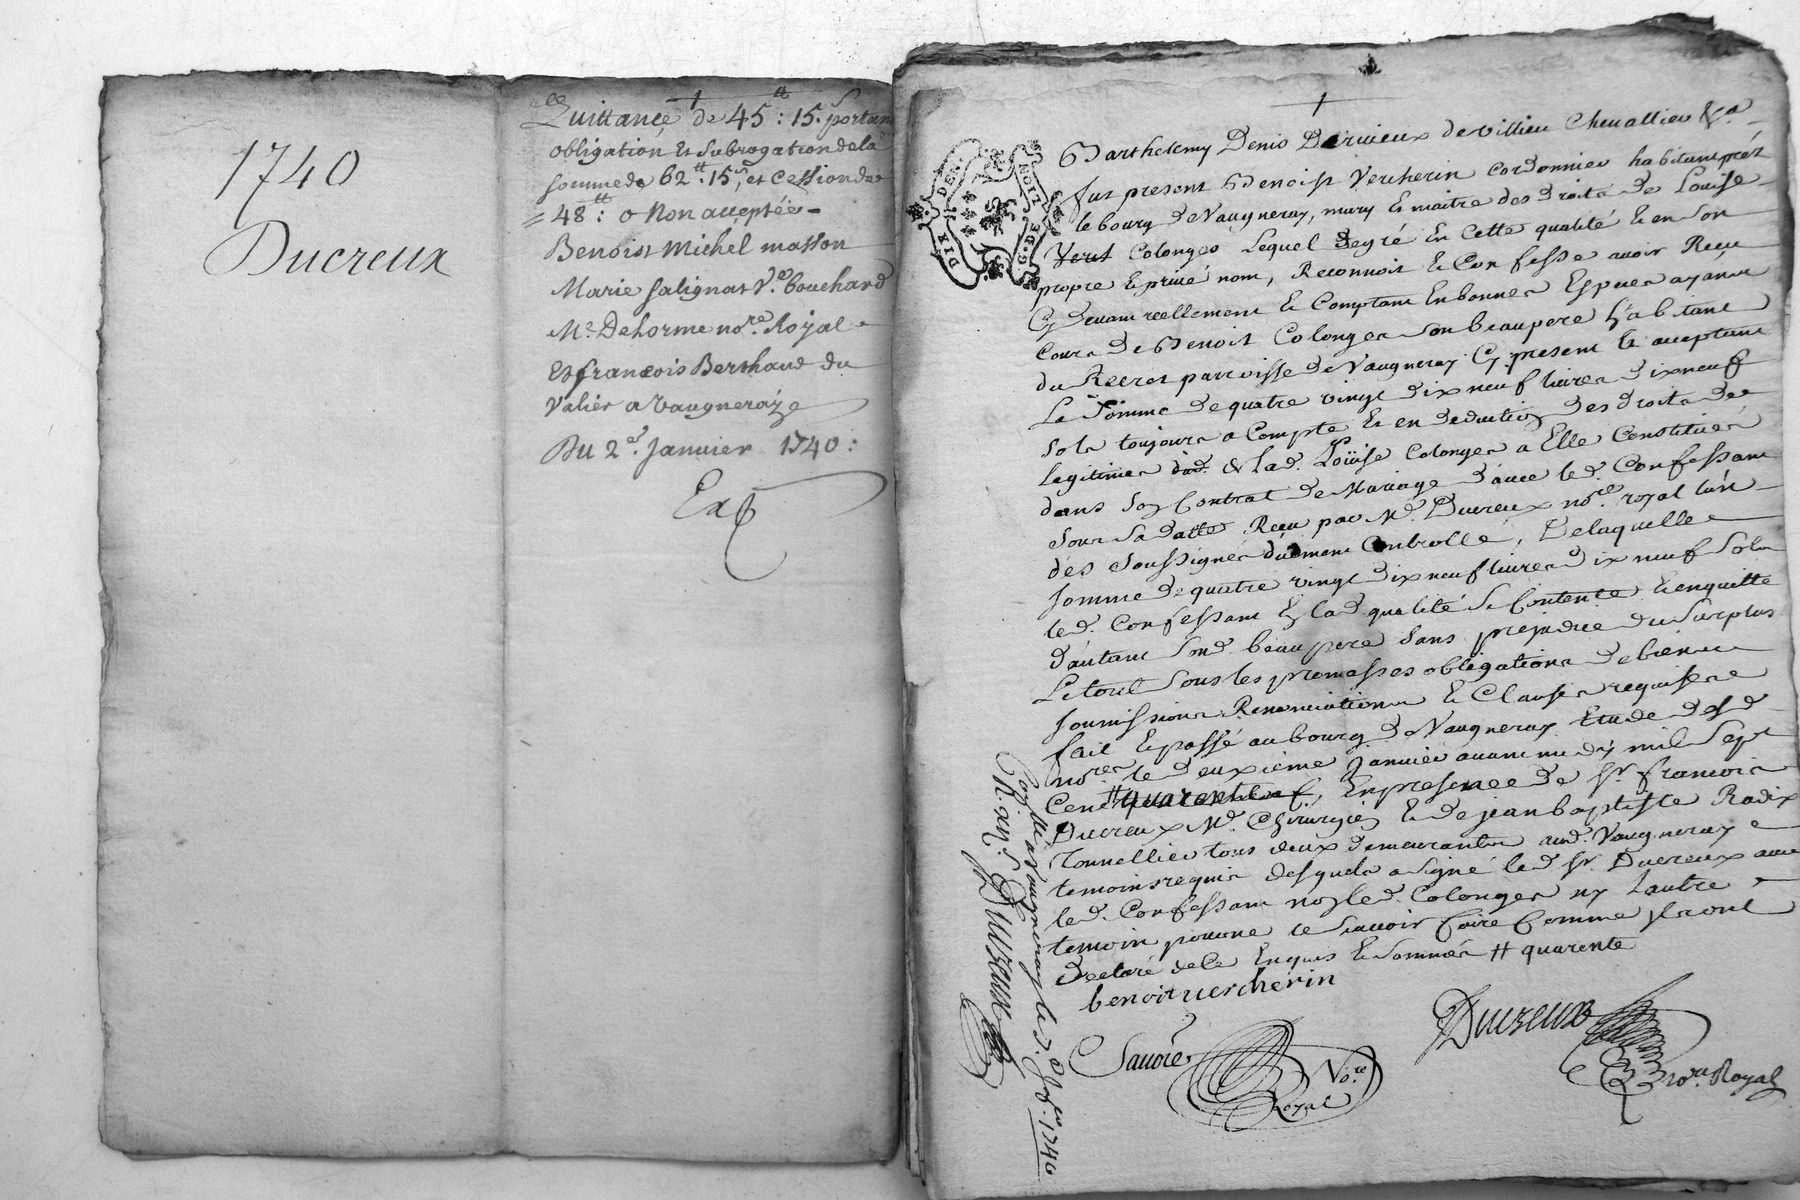 1740
Ducreux
Quittance de 45ᵗᵗ: 15ˢ. portant
obligation Et Subrogation de la
somme de 62ᵗᵗ. 15ˢ, et Cession de
= 48ᵗᵗ: 0 Non acceptée -
Benoist Michel masson
Marie salignat Vᵉ. bouchard
Mᵉ. Delorme noʳᵉ. Royal
Et françois Berthaud du
Valier a vaugneray
Du 2ᵉ. Janvier 1740:
Exp
Barthelemy Denis Dervieux de villieu Chevallier &ᵃ
fut present Benoist Vercherin Cordonnier habitant pnt
le bourg de Vaugneray, mary Et maitre des droits de Louise
Colonges Lequel de gré En Cette qualité Et en Son
propre Et privé nom, Reconnoit Et Confesse avoir Reçu
Cy devant reellement Et Comptant En bonnes Espèces ayant
Cours de Benoit Colonges Son beaupere habitant
du Recret parroisse de Vaugneray Cy present Et acceptant
La Somme de quatre vingt dix neuf livres dix neuf
Sols toujours a Compte Et en deduction des droits
Legitimes de lad. Loüise Colonges a Elle Constitués
dans Son Contrat de Mariage d'avec led. Confessant
Sous Sa datte Reçu par Mᵉ. Ducreux noʳᵉ royal l'un
des Soussignés dûement Controllé, De laquelle
Somme de quatre vingt dix neuf livres dix neuf Sols
led. Confessant En lad. qualité Se Contente Et en quitte
d'autant Sond. beaupere Sans prejudice du Surplus
Le tout Sous les promesses obligations de biens
Soumissions Renonciations Et Clauses requises
fait Et passé au bourg de Vaugneray Etude desd.
noʳᵉˢ le deuxieme Janvier avant midy mil Sept
Cent # quarente, En presence de Sʳ. françois
Ducreux Mᵉ. Chirurgien Et de jean baptiste Radix
Tonnellier tous deux demeurants aud. Vaugneray
temoins requis desquels a Signé led. Sʳ. Ducreux avec
led. Confessant non led. Colonges ny Lautre
temoin pour ne Scavoir faire Comme ils ont
declaré de ce Enquis Et Sommés # quarente
benoit vercherin
Ducreux
Savoie
Noʳᵉ
Royal
noʳᵉ. Royal
Ducreux
1740